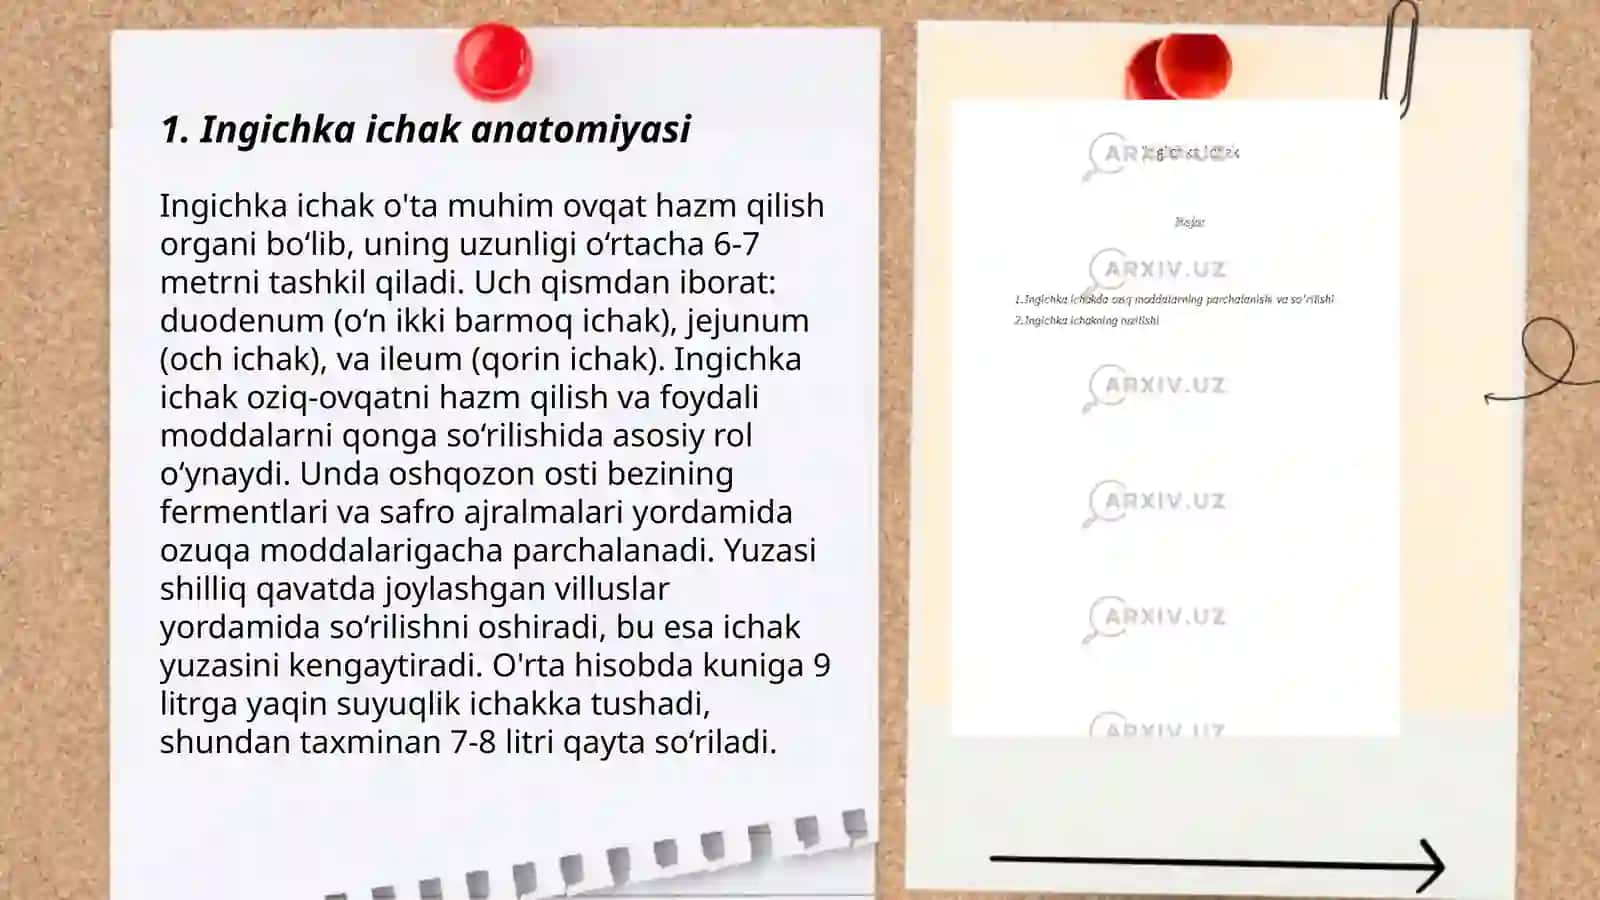 1. Ingichka ichak anatomiyasi
Ingichka ichak o'ta muhim ovqat hazm qilish
organi bo‘lib, uning uzunligi o‘rtacha 6-7
metrni tashkil qiladi. Uch qismdan iborat:
duodenum (o‘n ikki barmoq ichak), jejunum
(och ichak), va ileum (qorin ichak). Ingichka
ichak oziq-ovqatni hazm qilish va foydali
moddalarni qonga so‘rilishida asosiy rol
o‘ynaydi. Unda oshqozon osti bezining
fermentlari va safro ajralmalari yordamida
ozuqa moddalarigacha parchalanadi. Yuzasi
shilliq qavatda joylashgan villuslar
yordamida so‘rilishni oshiradi, bu esa ichak
yuzasini kengaytiradi. O'rta hisobda kuniga 9
litrga yaqin suyuqlik ichakka tushadi,
shundan taxminan 7-8 litri qayta so‘riladi.
ARXIV.UZ
ARXIV.UZ
1.Ingichka ichakda oziq moddalarning parchalanishi va so'rilishi
2.Ingichka ichakning tuzilishi
ARXIV.UZ
ARXIV.UZ
ARXIV.UZ
ARXIV.UZ